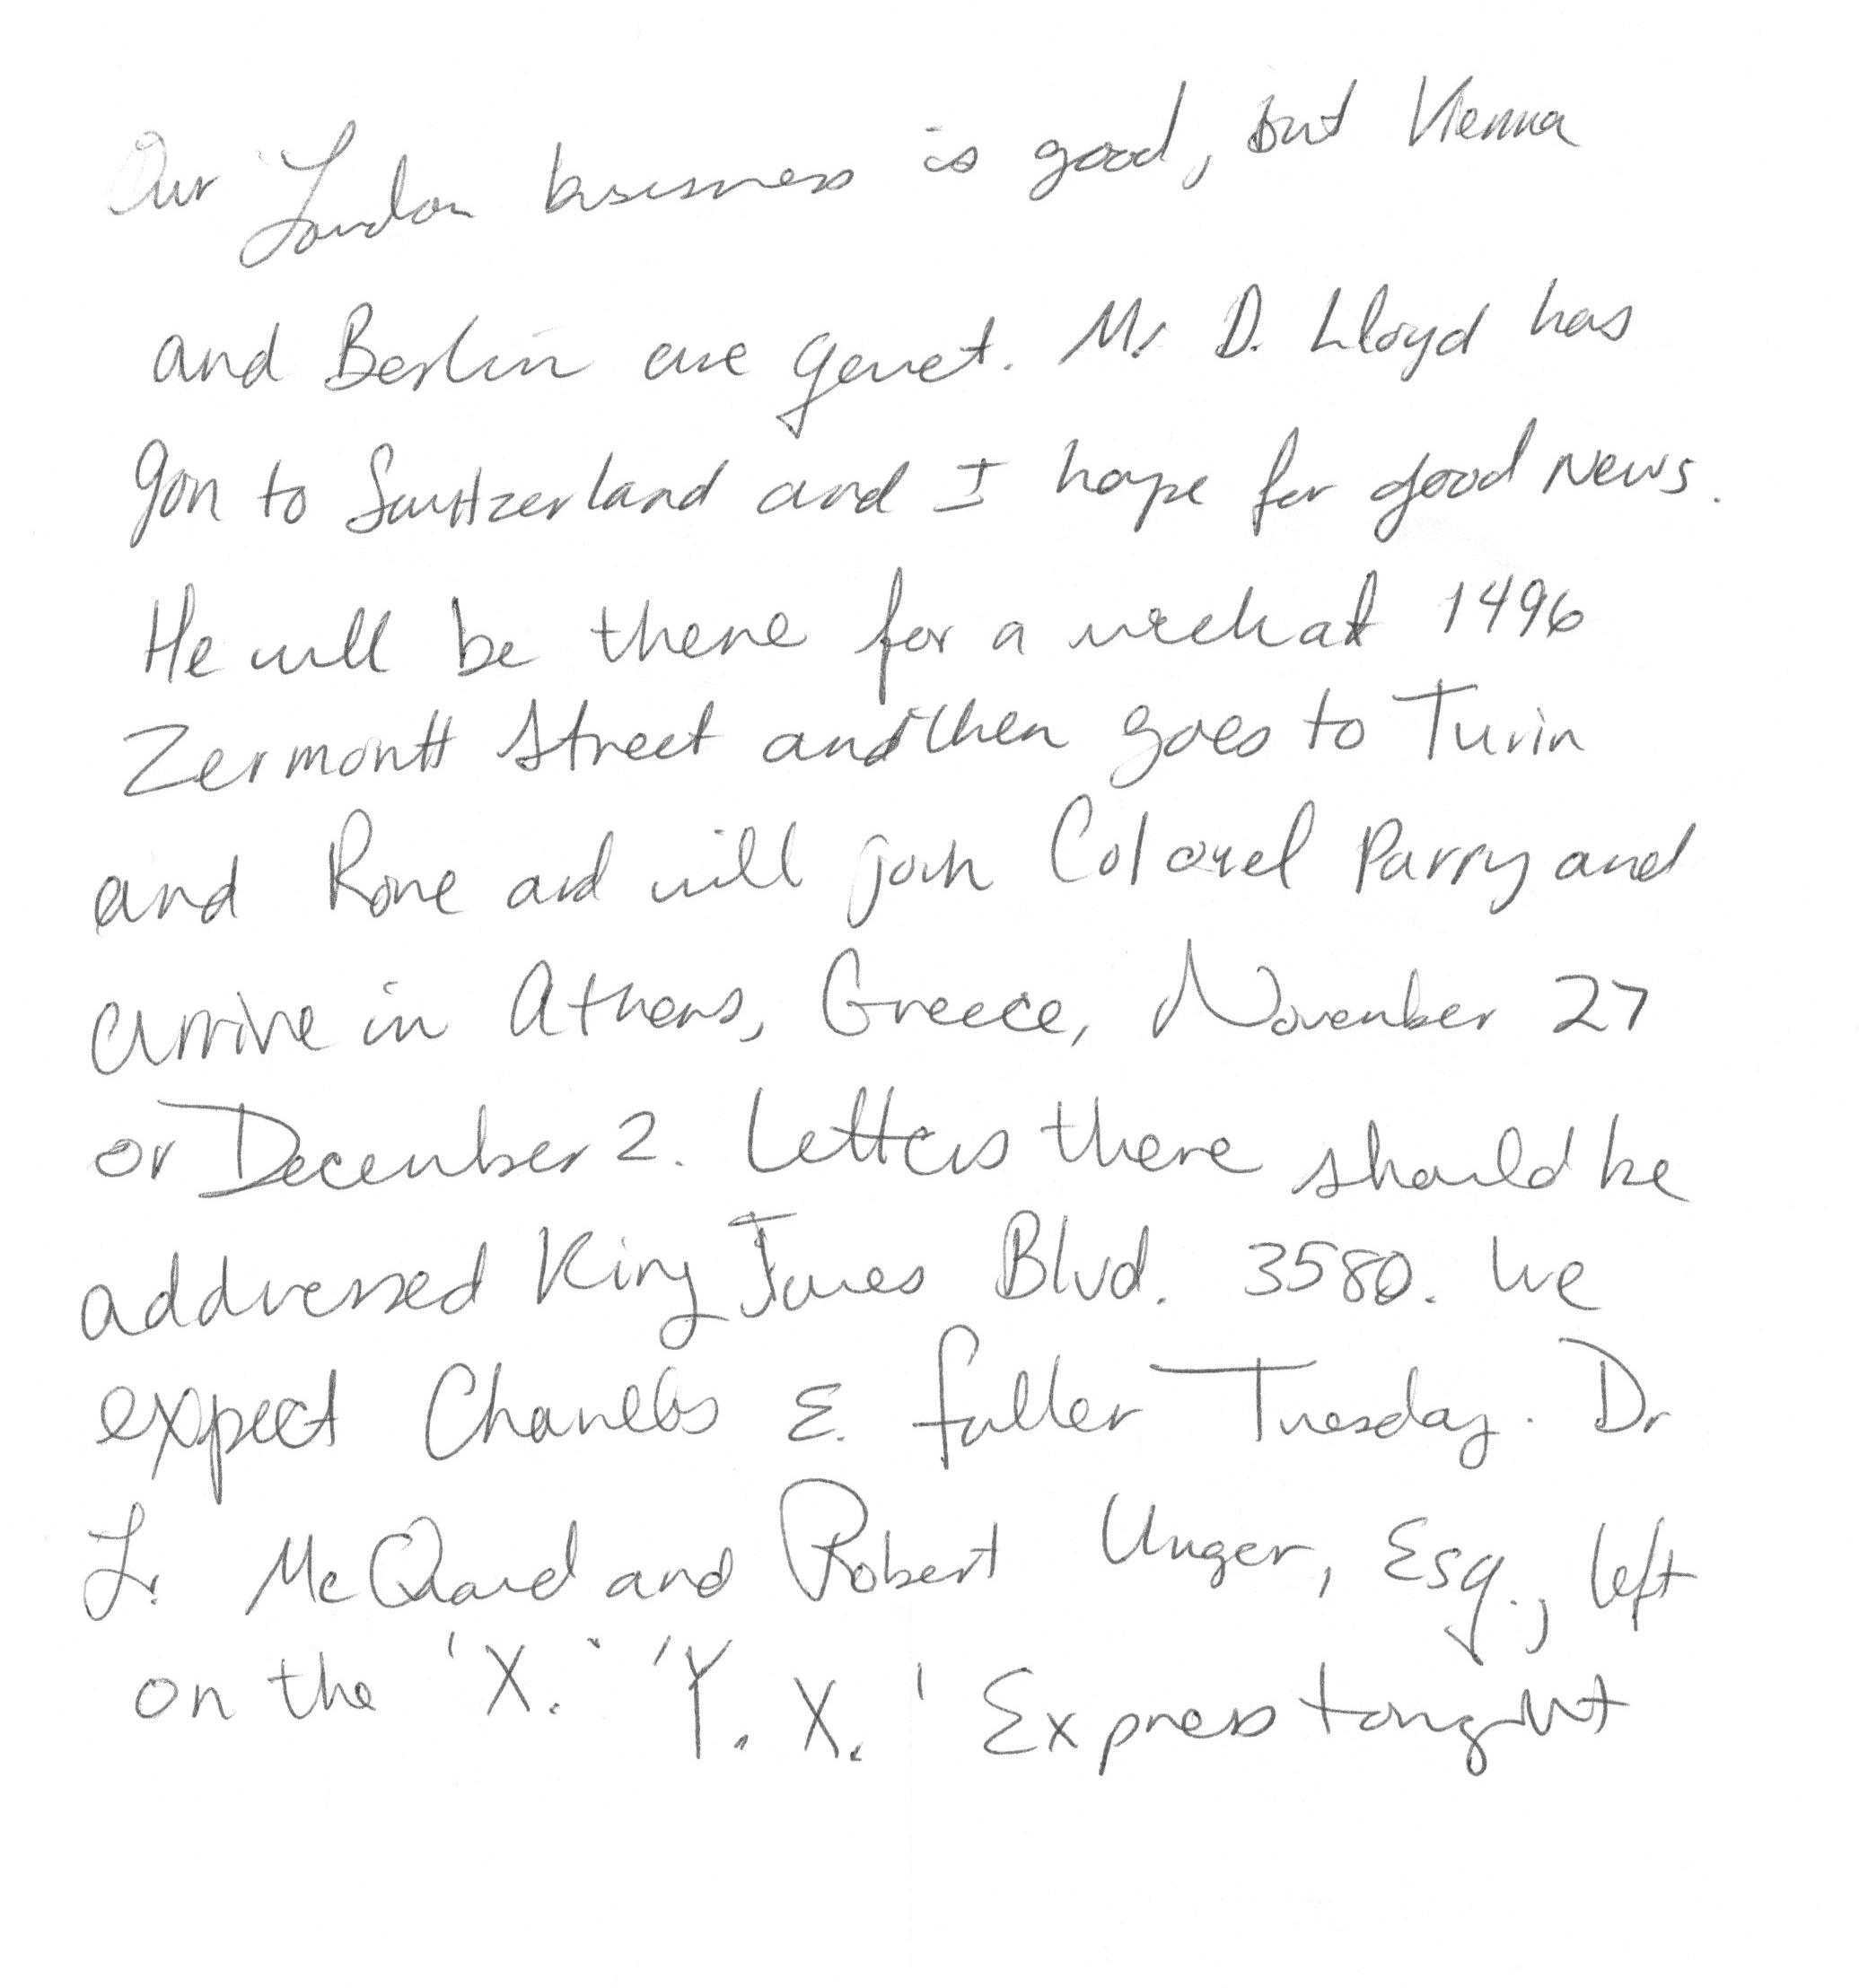 Our London business is good, but Vienna
and Berlin are quiet. Mr. D. Lloyd has
gon to Switzerland and I hope for good news.
He will be there for a week at 1496
Zermontt Street and then goes to Turin
and Rome and will join Colonel Parry and
arrive in Athens, Greece, November 27
or December 2. Letters there should be
addressed King James Blvd. 3580. We
expect Charles E. Fuller Tuesday. Dr
L. McQuaid and Robert Unger, Esq., left
on the 'X.' 'Y. X.' Express tonight